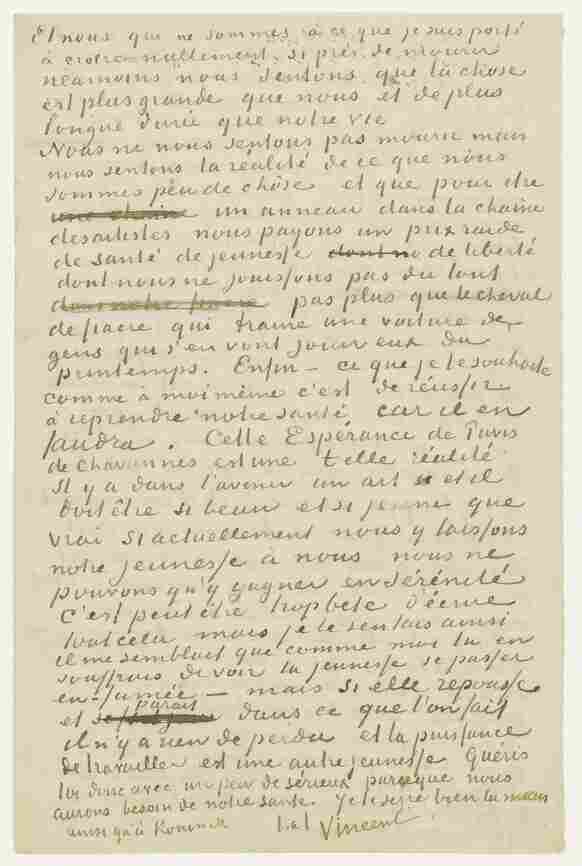 Et nous qui ne sommes à ce que je suis porté
à croire nullement si près de mourir
néamoins nous sentons que la chose
est plus grande que nous et de plus
longue durée que notre vie
Nous ne nous sentons pas mourir mais
nous sentons la réalité de ce que nous
sommes peu de chose et que pour être
une chaine un anneau dans la chaine
des artistes nous payons un prix raide
de santé de jeunesse dont n de liberté
dont nous ne jouissons pas du tout
pas plus que le cheval
de fiacre qui traine une voiture de
gens qui s'en vont jouir eux du
printemps. Enfin – ce que je te souhaite
comme à moi même c'est de réussir
à reprendre notre santé car il en
faudra. Cette Espérance de Puvis
de Chavannes est une telle réalité
Il y a dans l'avenir un art et il
doit être si beau et si jeune que
vrai si actuellement nous y laissons
notre jeunesse à nous nous ne
pouvons qu'y gagner en sérénité
C'est peut être trop bete d'écrire
tout cela mais je le sentais ainsi
il me semblait que comme moi tu en
souffrais de voir ta jeunesse se passer
en fumée – mais si elle repousse
et parait dans ce que l'on fait
il n'y a rien de perdu et la puissance
de travailler est une autre jeunesse Guéris
toi donc avec un peu de sérieux parceque nous
aurons besoin de notre santé. Je te serre bien la main
ainsi qu'à Koninck t. à t Vincent